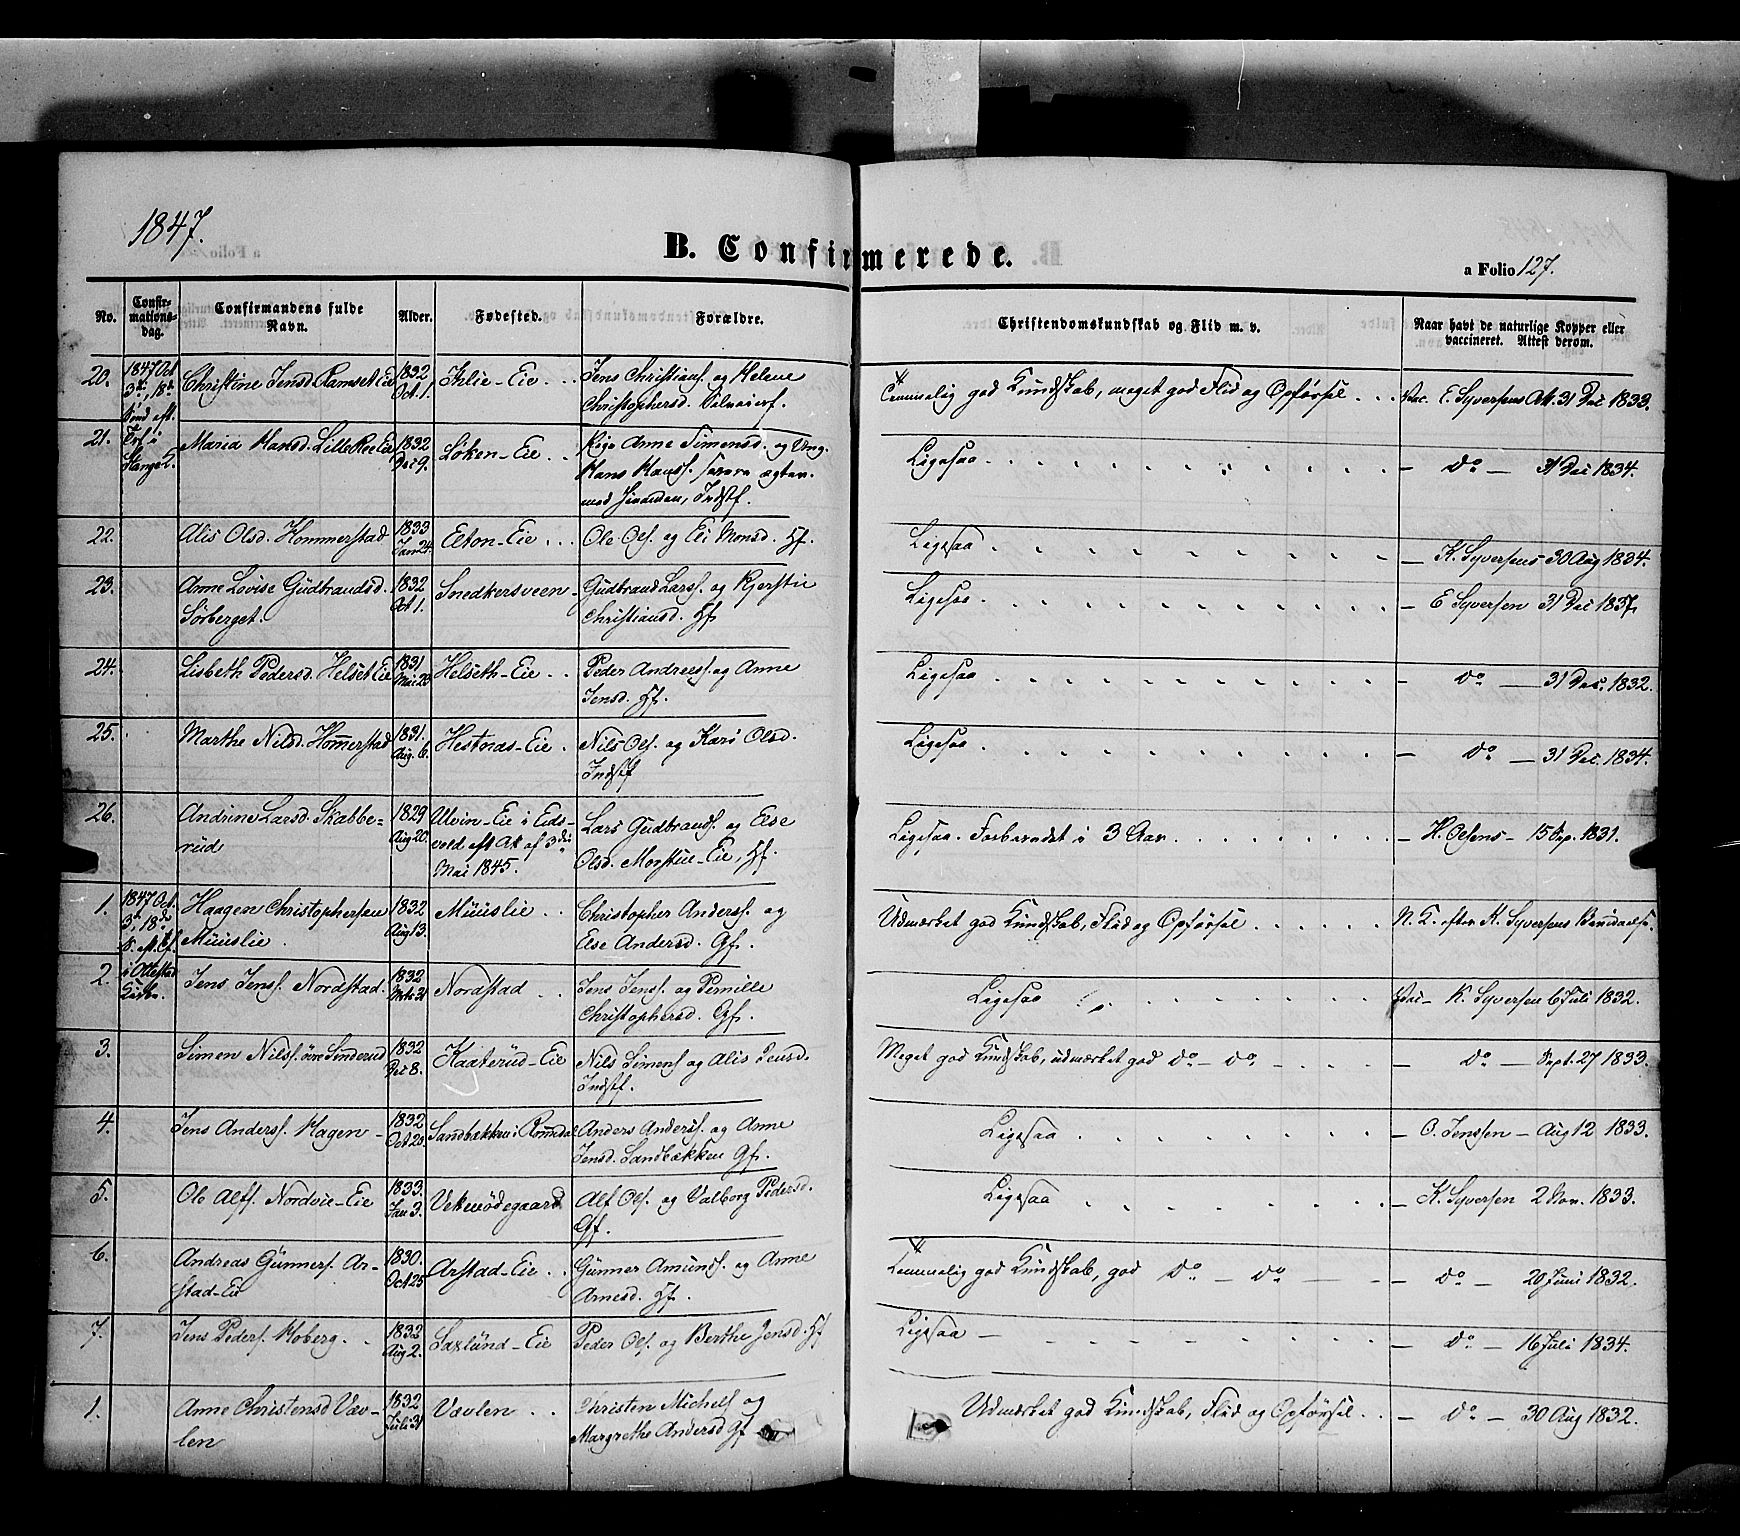 1847.
B. Confirmerede.
a Folio 127.
No.
Confir-
mations-
dag.
Confirmandens fulde
Navn.
Alder.
Fødested.
Forældre.
Christendomskundskab og Flid m. v.
Naar havt de naturlige Kopper eller
vaccineret. Attest derom.
20. 1847 Oct 3die, 18de Christine Jensd. Ramset Eie 1832 Oct. 1. Ihlie-Eie Jens Christians. og Helene
Christophersd.
Temmelig god Kundskab, meget god Flid og Opførsel Vac. E. Syversens Att. 31 Dec 1833.
21. Maria Hansd. Lille Ree Eie 1832 Dec 9. Løken-Eie Pige Anne Simensd. og Ung.
Hans Hanss.
Indstf.
Ligesaa - do - 31 Dec 1834.
22. Alis Olsd. Hommerstad 1833 Jan 24. Elton-Eie Ole Ols. og Eli Monsd. Hf.
Ligesaa - K. Syversens 30 Aug 1834.
23. Anne Lovise Gudbrandsd. 1832 Oct 1. Snedkersveen Gudbrand Larss. og Kjerstie
Sørberget. Christiansd. Hf.
Ligesaa - E Syversen 31 Dec 1837.
24. Lisbeth Pedersd. Helset Eie 1831 Mai 20 Helseth-Eie Peder Andreess. og Anne
Jensd. Hf.
Ligesaa - do - 31 Dec. 1832.
25. Marthe Nilsd. Hommerstad 1831. Aug. 6. Hestnæs-Eie Nils Ols. og Kari Olsd.
Indstf
Ligesaa - do - 31 Dec. 1834.
26. Andrine Larsd. Skabbe- 1829 Aug 20. Ulvin-Eie i Eids- Lars Gudbrands. og Else
rud vold eft. Att. af 3die Olsd. Morstue-Eie, Hf.
Mai 1845.
Ligesaa. Forberedet i 3 Aar - H. Olsens - 15 Sep. 1831.
1. 1847 Oct. 3die, 18de Haagen Christophersen 1832 Aug 13. Muuslie Christopher Anderss. og
Muuslie i Ottestad Else Andersd. Gf.
Udmærket god Kundskab, Flid og Opførsel N. K. efter K. Syversens
2. Jens Jenss. Nordstad. 1832 Nordstad Jens Jenss. og Pernille
Christophersd. Gf.
Ligesaa Vac- K. Syversen 6 Juli 1832.
3. Simen Nilss. øvre Sinderud 1832 Dec 8. Kaaterud-Eie Nils Simens. og Alis Jensd.
Indstf.
Meget god Kundskab, udmærket god do - do - do - Sept. 27 1833.
4. Jens Anderss. Hagen 1832 Sandbækken i Romedal Anders Anderss. og Anne
Jensd. Sandbækken Gf.
Ligesaa - O. Jenssen - Aug 12 1833.
5. Ole Alfs. Nordvie-Eie 1833. Jan 3. Vekneødegaard Alf Ols. og Valborg Pedersd.
Gf.
Ligesaa - K. Syversen 2 Nov. 1833.
6. Andreas Gunners. Ar- 1830. Oct 25 Arstad-Eie Gunner Amunds. og Anne
stad-Eie Arnesd. Hf.
Temmelig god Kundskab, god do - do - do - 20 Juni 1832.
7. Jens Peders. Hoberg. 1832 Aug 2. Saxlund-Eie Peder Ols. og Berthe Jensd. Hf
Ligesaa - do - 16 Juli 1834.
1. Anne Christensd Væv- 1832 Juli 31 Vævlen Christen Michels og
len Margrethe Andersd Gf
Udmærket god Kundskab, Flid og Opførsel - do - 30 Aug 1832.